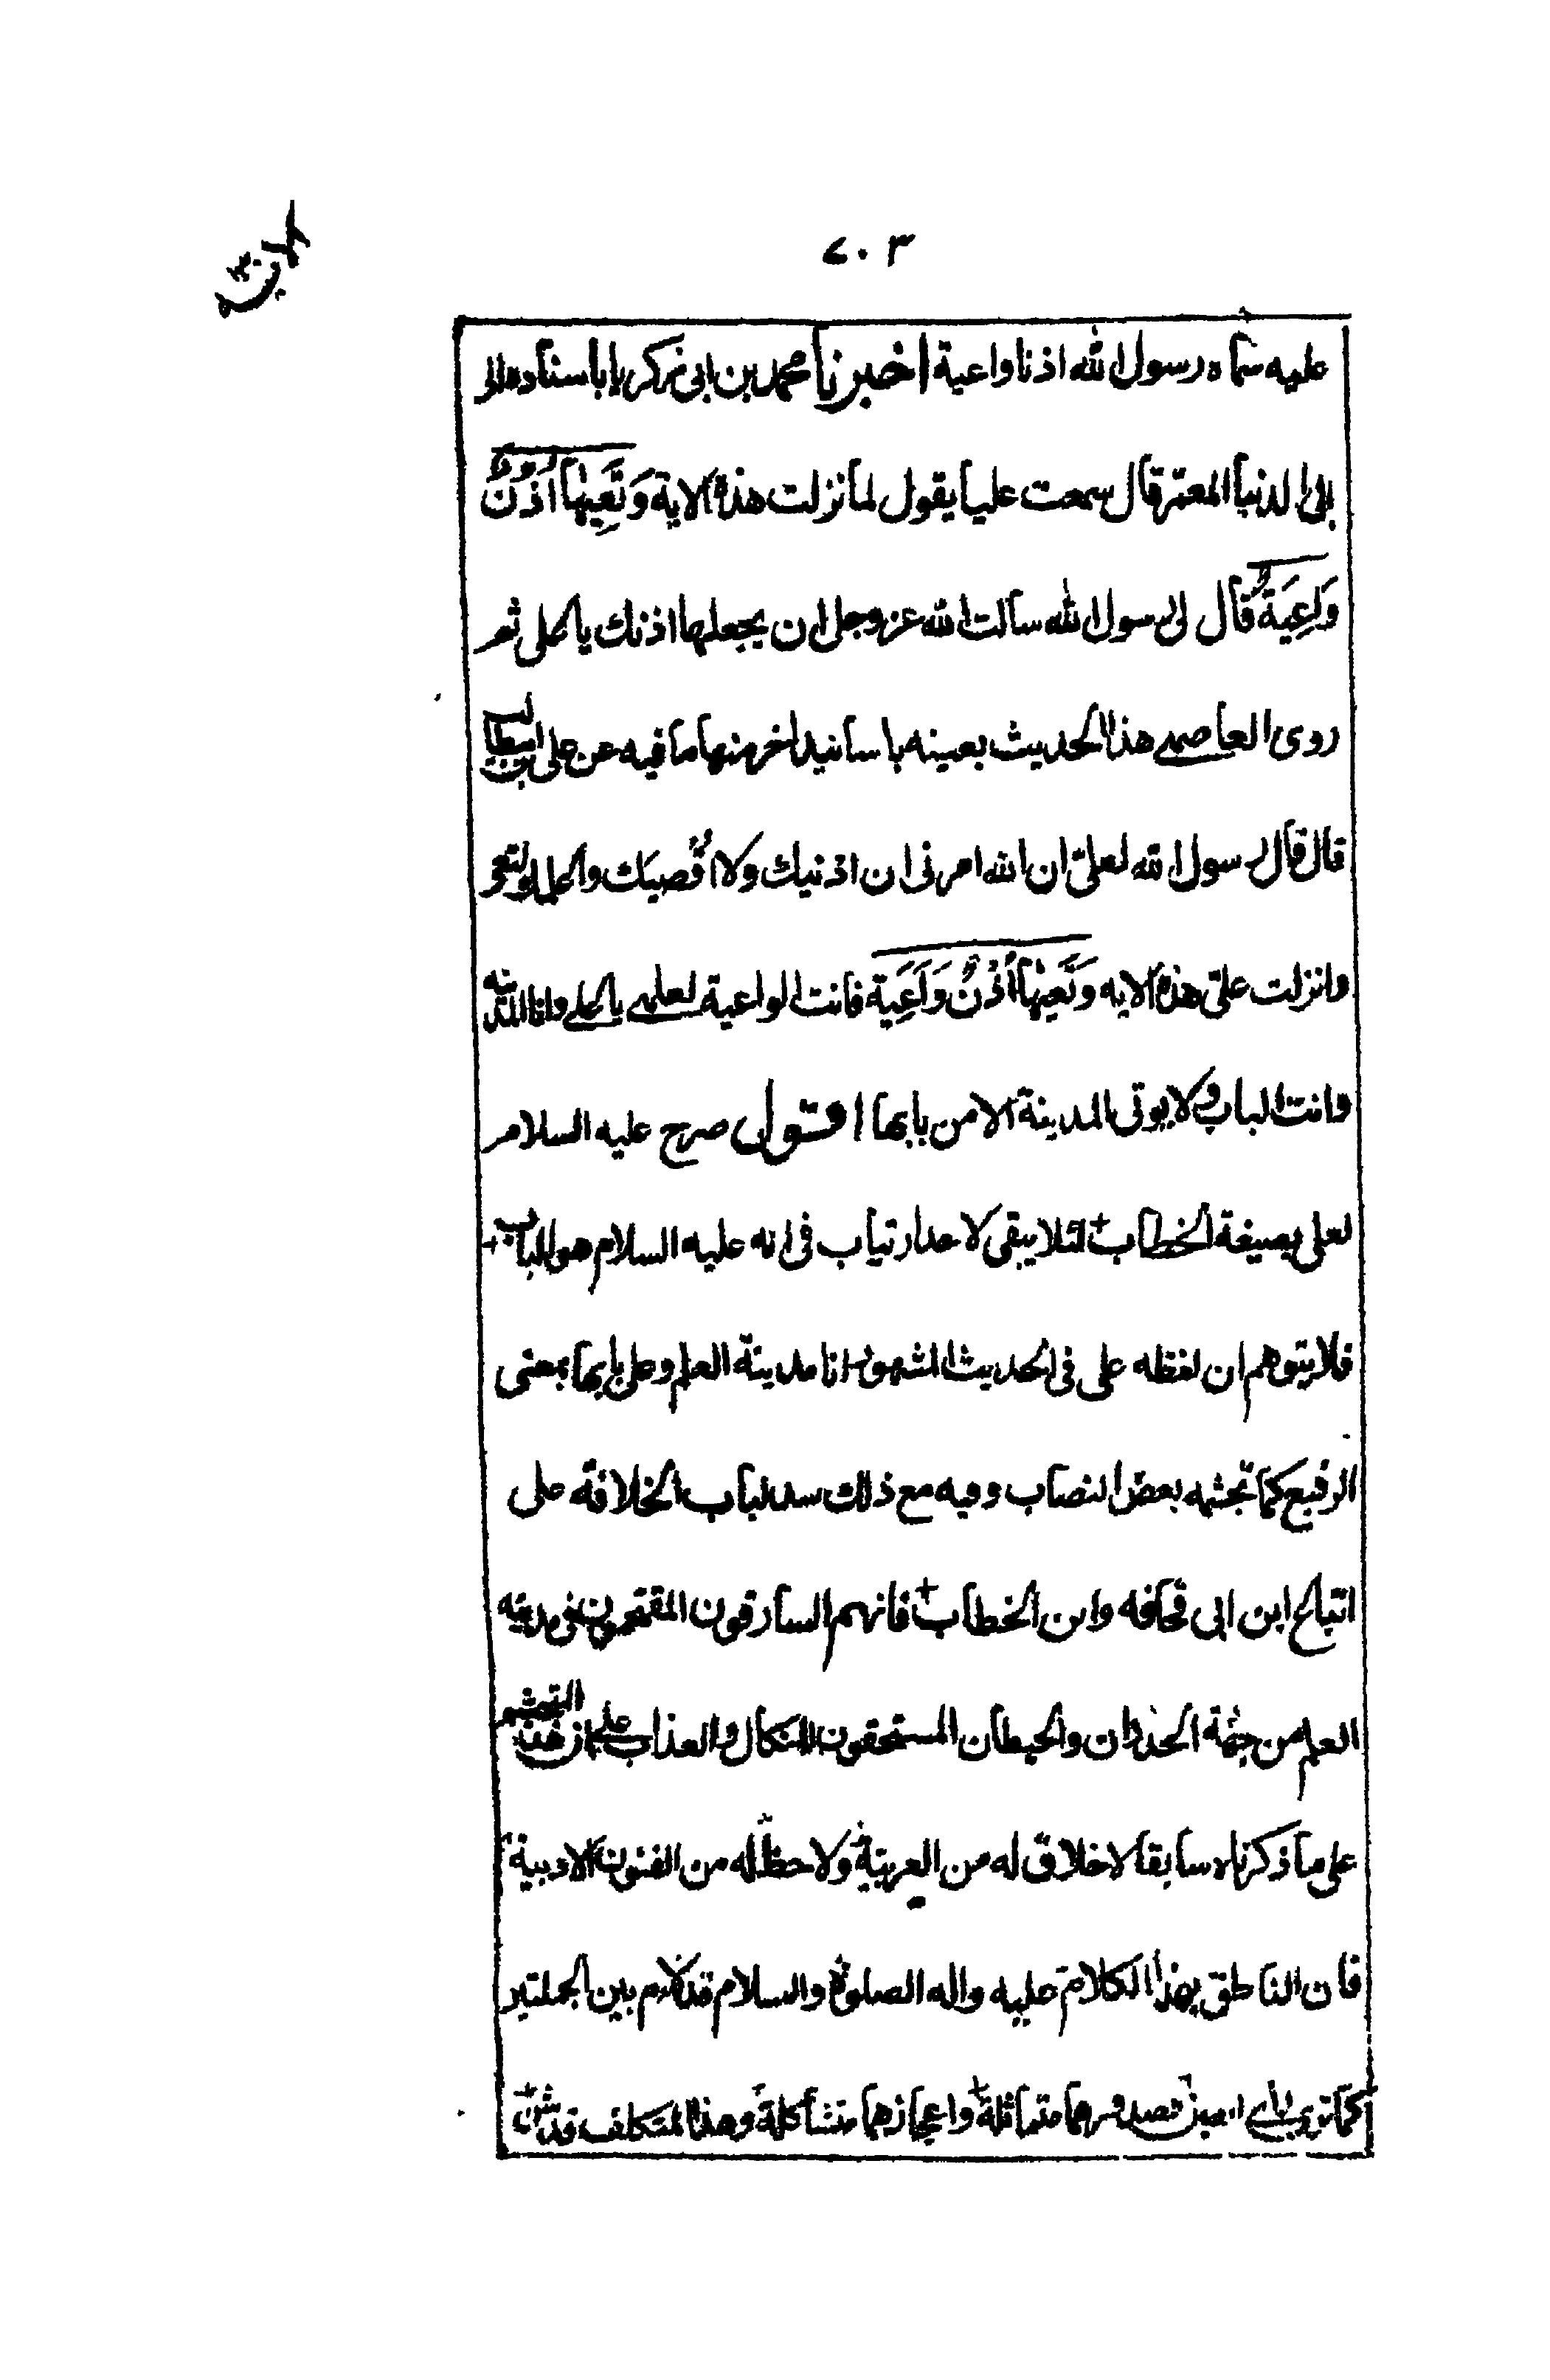 ٧٠٣
عليه سماه رسول الله اذنا واعية اخبرنا محمد بن ابى زكريا باسناده الى
ابى الدنيا المعمر قال سمعت عليا يقول لما نزلت هذه الاية وَتَعِيَهَا اُذُنٌ
وَاعِيَةٌ قال لى رسول الله سالت الله عز وجل ان يجعلها اذنك يا على ثم
روى العاصمى هذا الحديث بعينه باسانيد اخر منها ما فيه عن على بن ابيطالب
قال قال رسول الله لعلى ان الله امرنى ان ادنيك ولا اُقصيك
وانزلت على هذه الايه وَتَعِيَهَا اُذُنٌ وَاعِيَة فانت الواعية لعلمى يا على وانا المدينه
وانت الباب ولا يوتى المدينة الا من بابها اقول صرح عليه السلام
لعلى بصيغة الخطاب لئلا يبقى لاحد ارتياب فى انه عليه السلام هو الباب
فلا يتوهم ان لفظه على فى الحديث المشهور انا مدينة العلم وعلى بابها بمعنى
الرفيع كما تجشمه بعض النصاب وفيه مع ذلك سد لباب الخلافة على
اتباع ابن ابى قحافه وابن الخطاب فانهم السارقون المقتحمون فى مدينه
العلم من جهة الجدران والحيطان المستحقون للنكال والعذاب
على ما ذكرناه سابقا لا خلاق له من العربية ولا حظ له من الفنون الادبية
فان الناطق بهذا الكلام عليه واله الصلوة والسلام قد لائم بين الجملتين
كما ترى متماثلة واعجازهما متشاكلة وهذا المتكلف قد